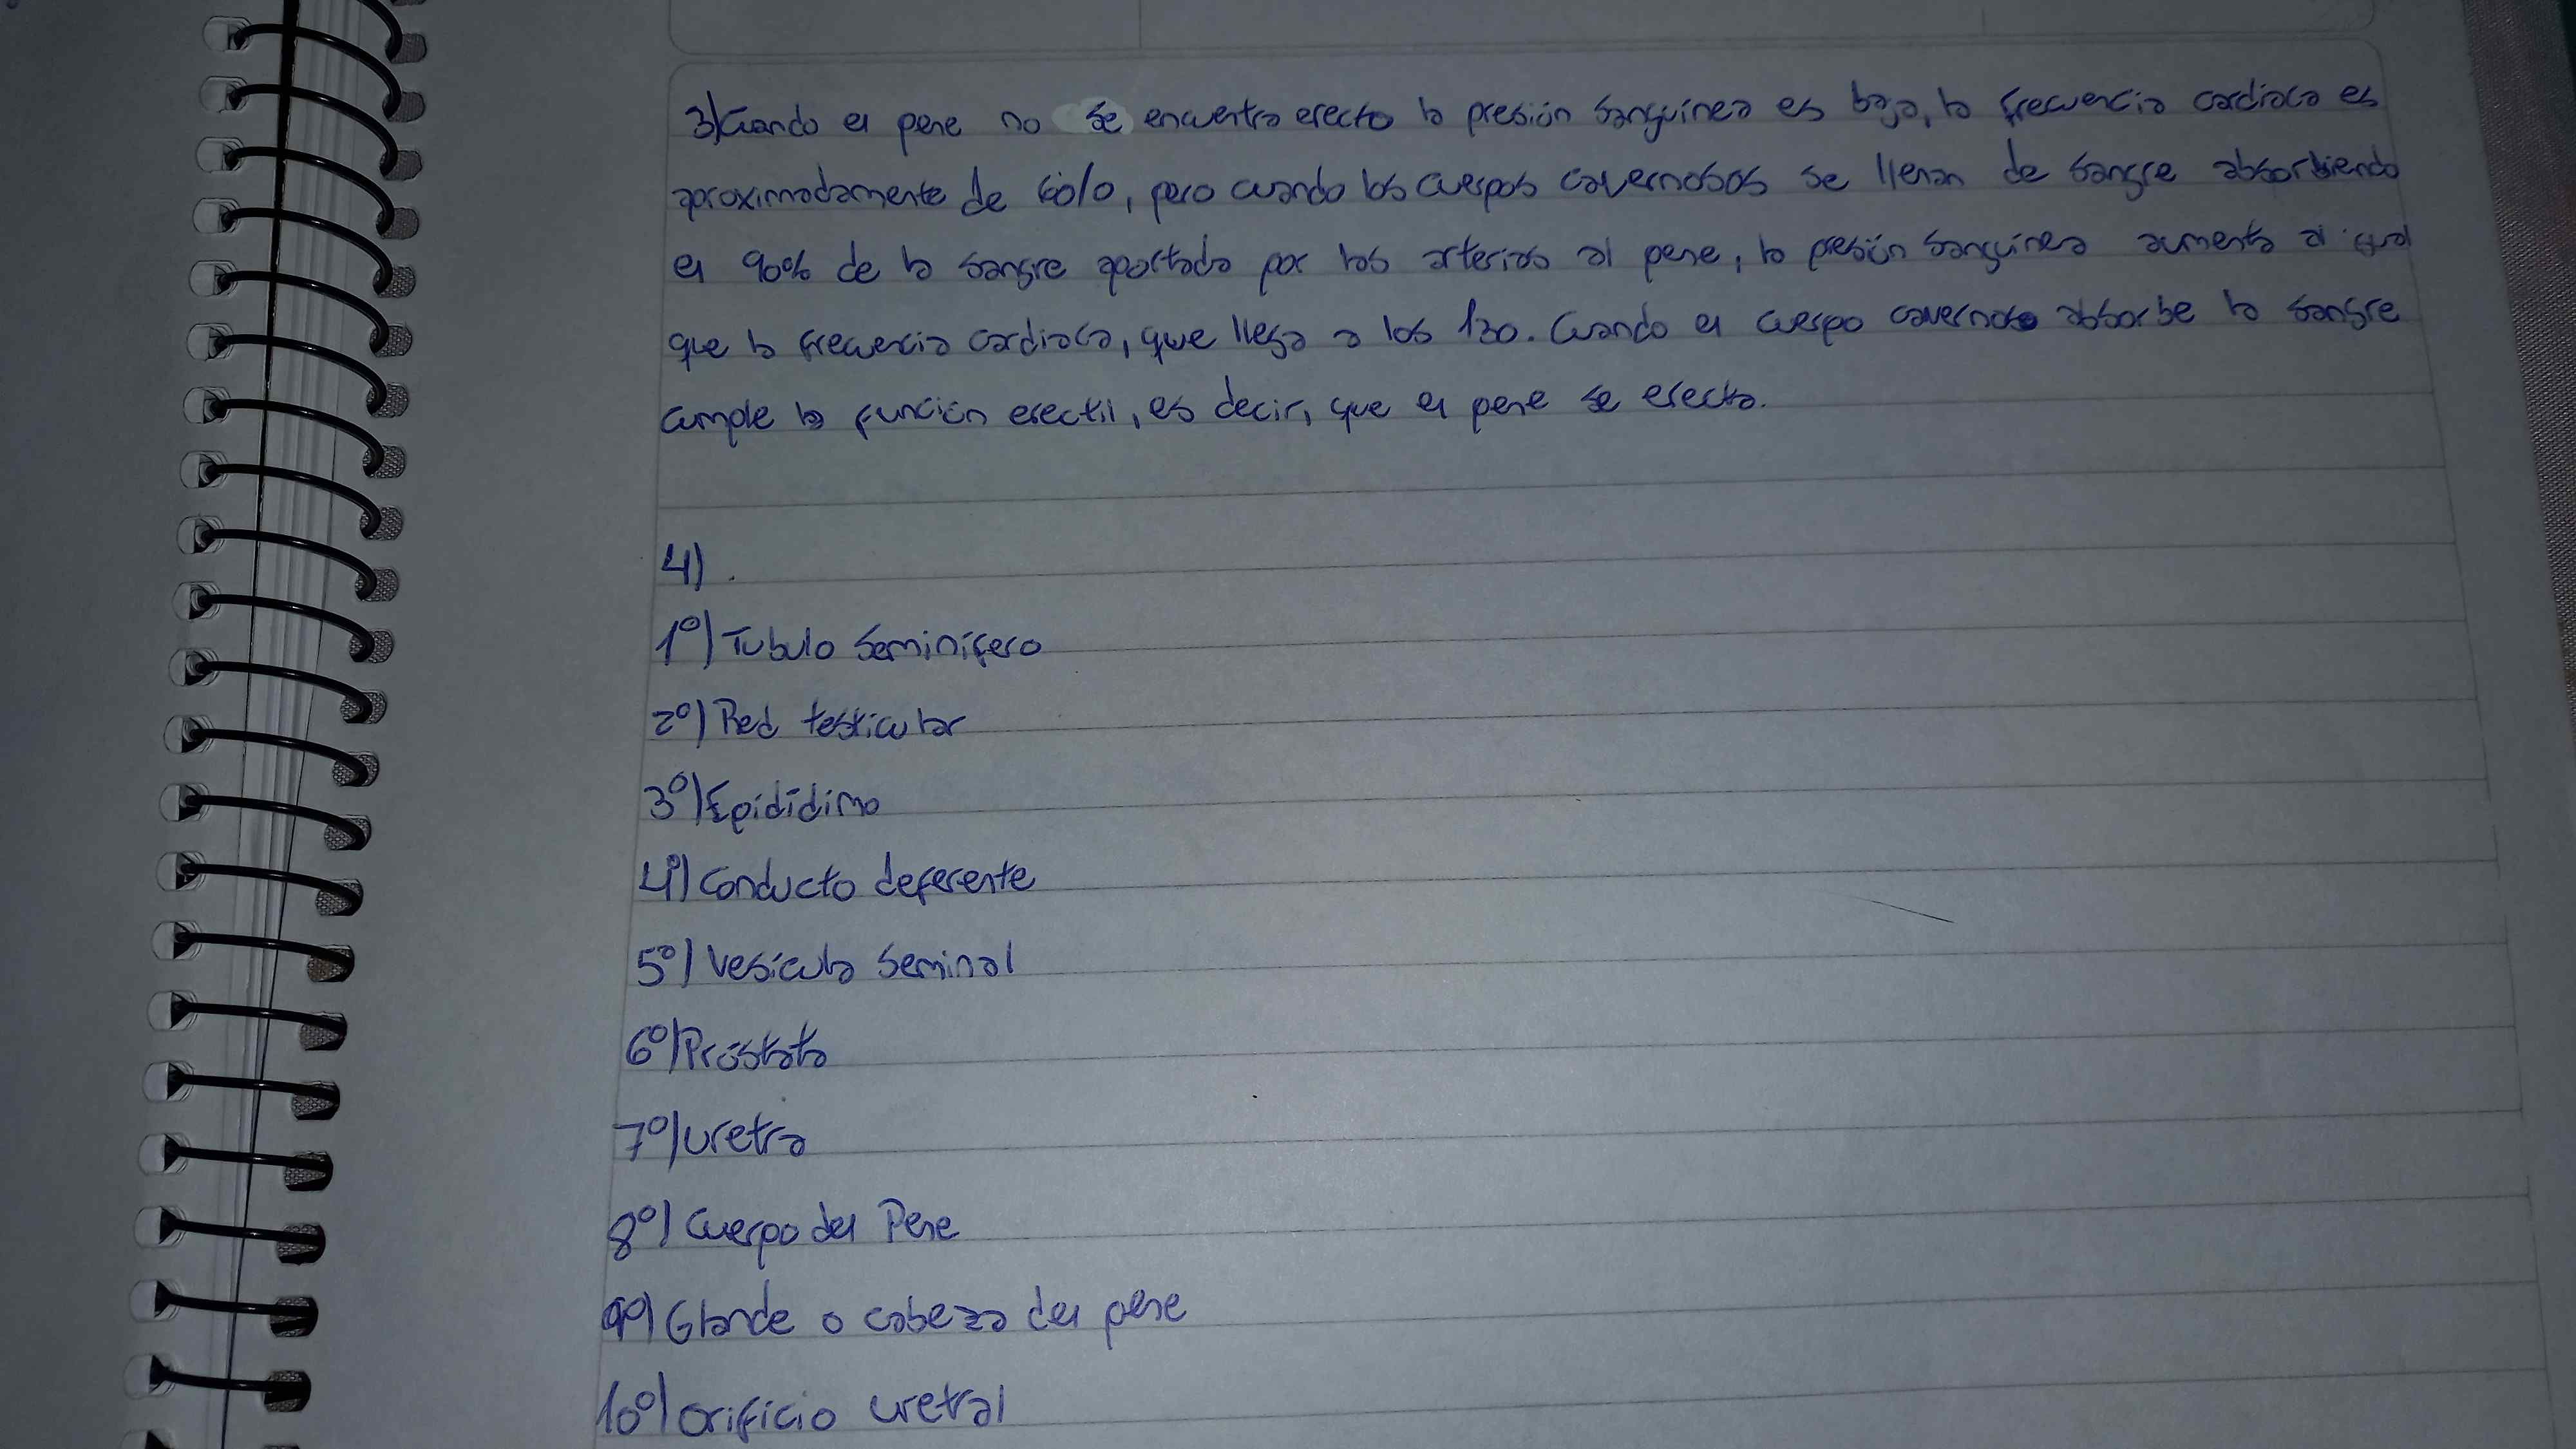 3) Cuando el pene no se encuentra erecto la presión sanguínea es baja, la frecuencia cardiaca es
aproximadamente de solo, pero cuando los cuerpos cavernosos se llenan de sangre absorbiendo
el 90% de la sangre aportada por las arterias al pene, la presión sanguínea aumenta al igual
que la frecuencia cardiaca, que llega a los 130. Cuando el cuerpo cavernoso absorbe la sangre
cumple la función erectil, es decir, que el pene se erecta.
4)
1º) Tubulo seminífero
2º) Red testicular
3º) Epidídimo
4º) Conducto deferente
5º) Vesícula seminal
6º) Próstata
7º) Uretra
8º) Cuerpo del Pene
9º) Glande o cabeza del pene
10º) Orificio uretral